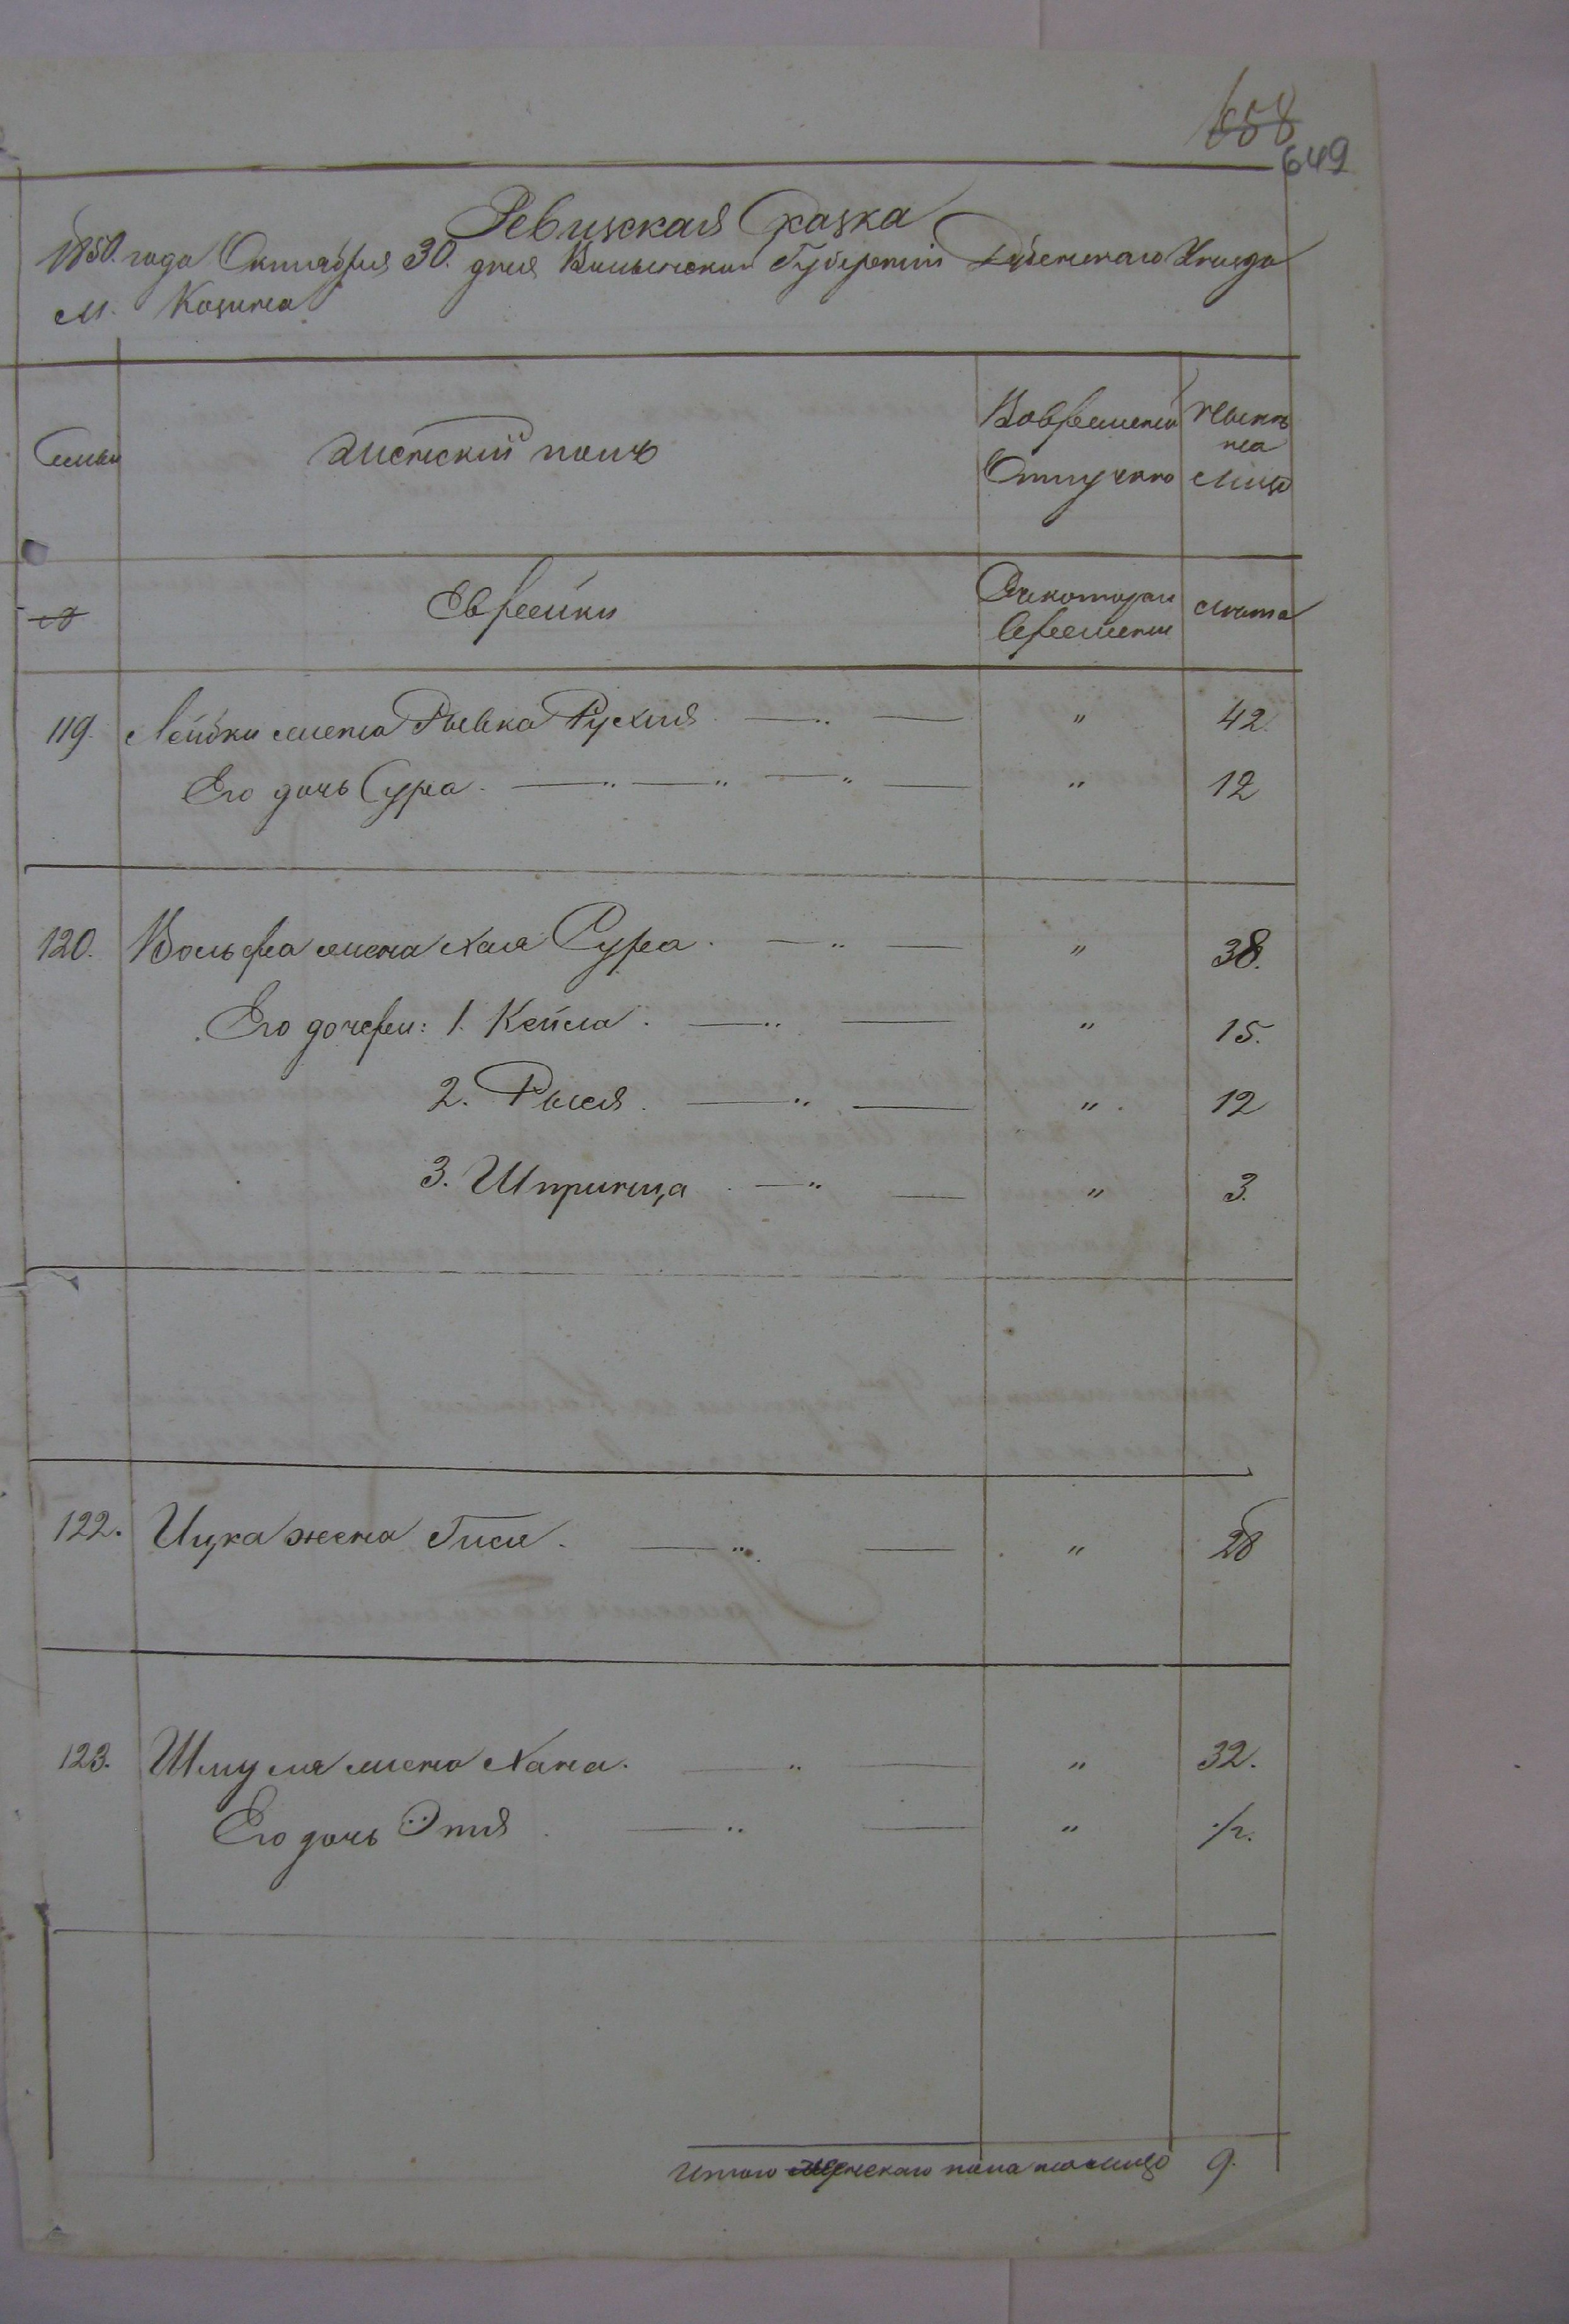 658
649
Ревизская Сказка
1850. года Октября 30. дня Волынской Губернии Дубенского Уезда
м. Козина
Семьи
Женский полъ
Вовременной Отлучке
Ныне на лицо
Еврейки
Скоторого времени
Лета
119. Лейбки жена Рывка Рухля " 42.
Его дочь Сура " 12
120. Вольфа жена Хая Сура " 38.
Его дочери: 1. Кейла " 15.
2. Рыся " 12
3. Шпринца " 3.
122. Ицка жена Гися " 28
123. Шмуля жена Хана. " 32.
Его дочь Этя " ½.
Итого женского пола налицо 9.